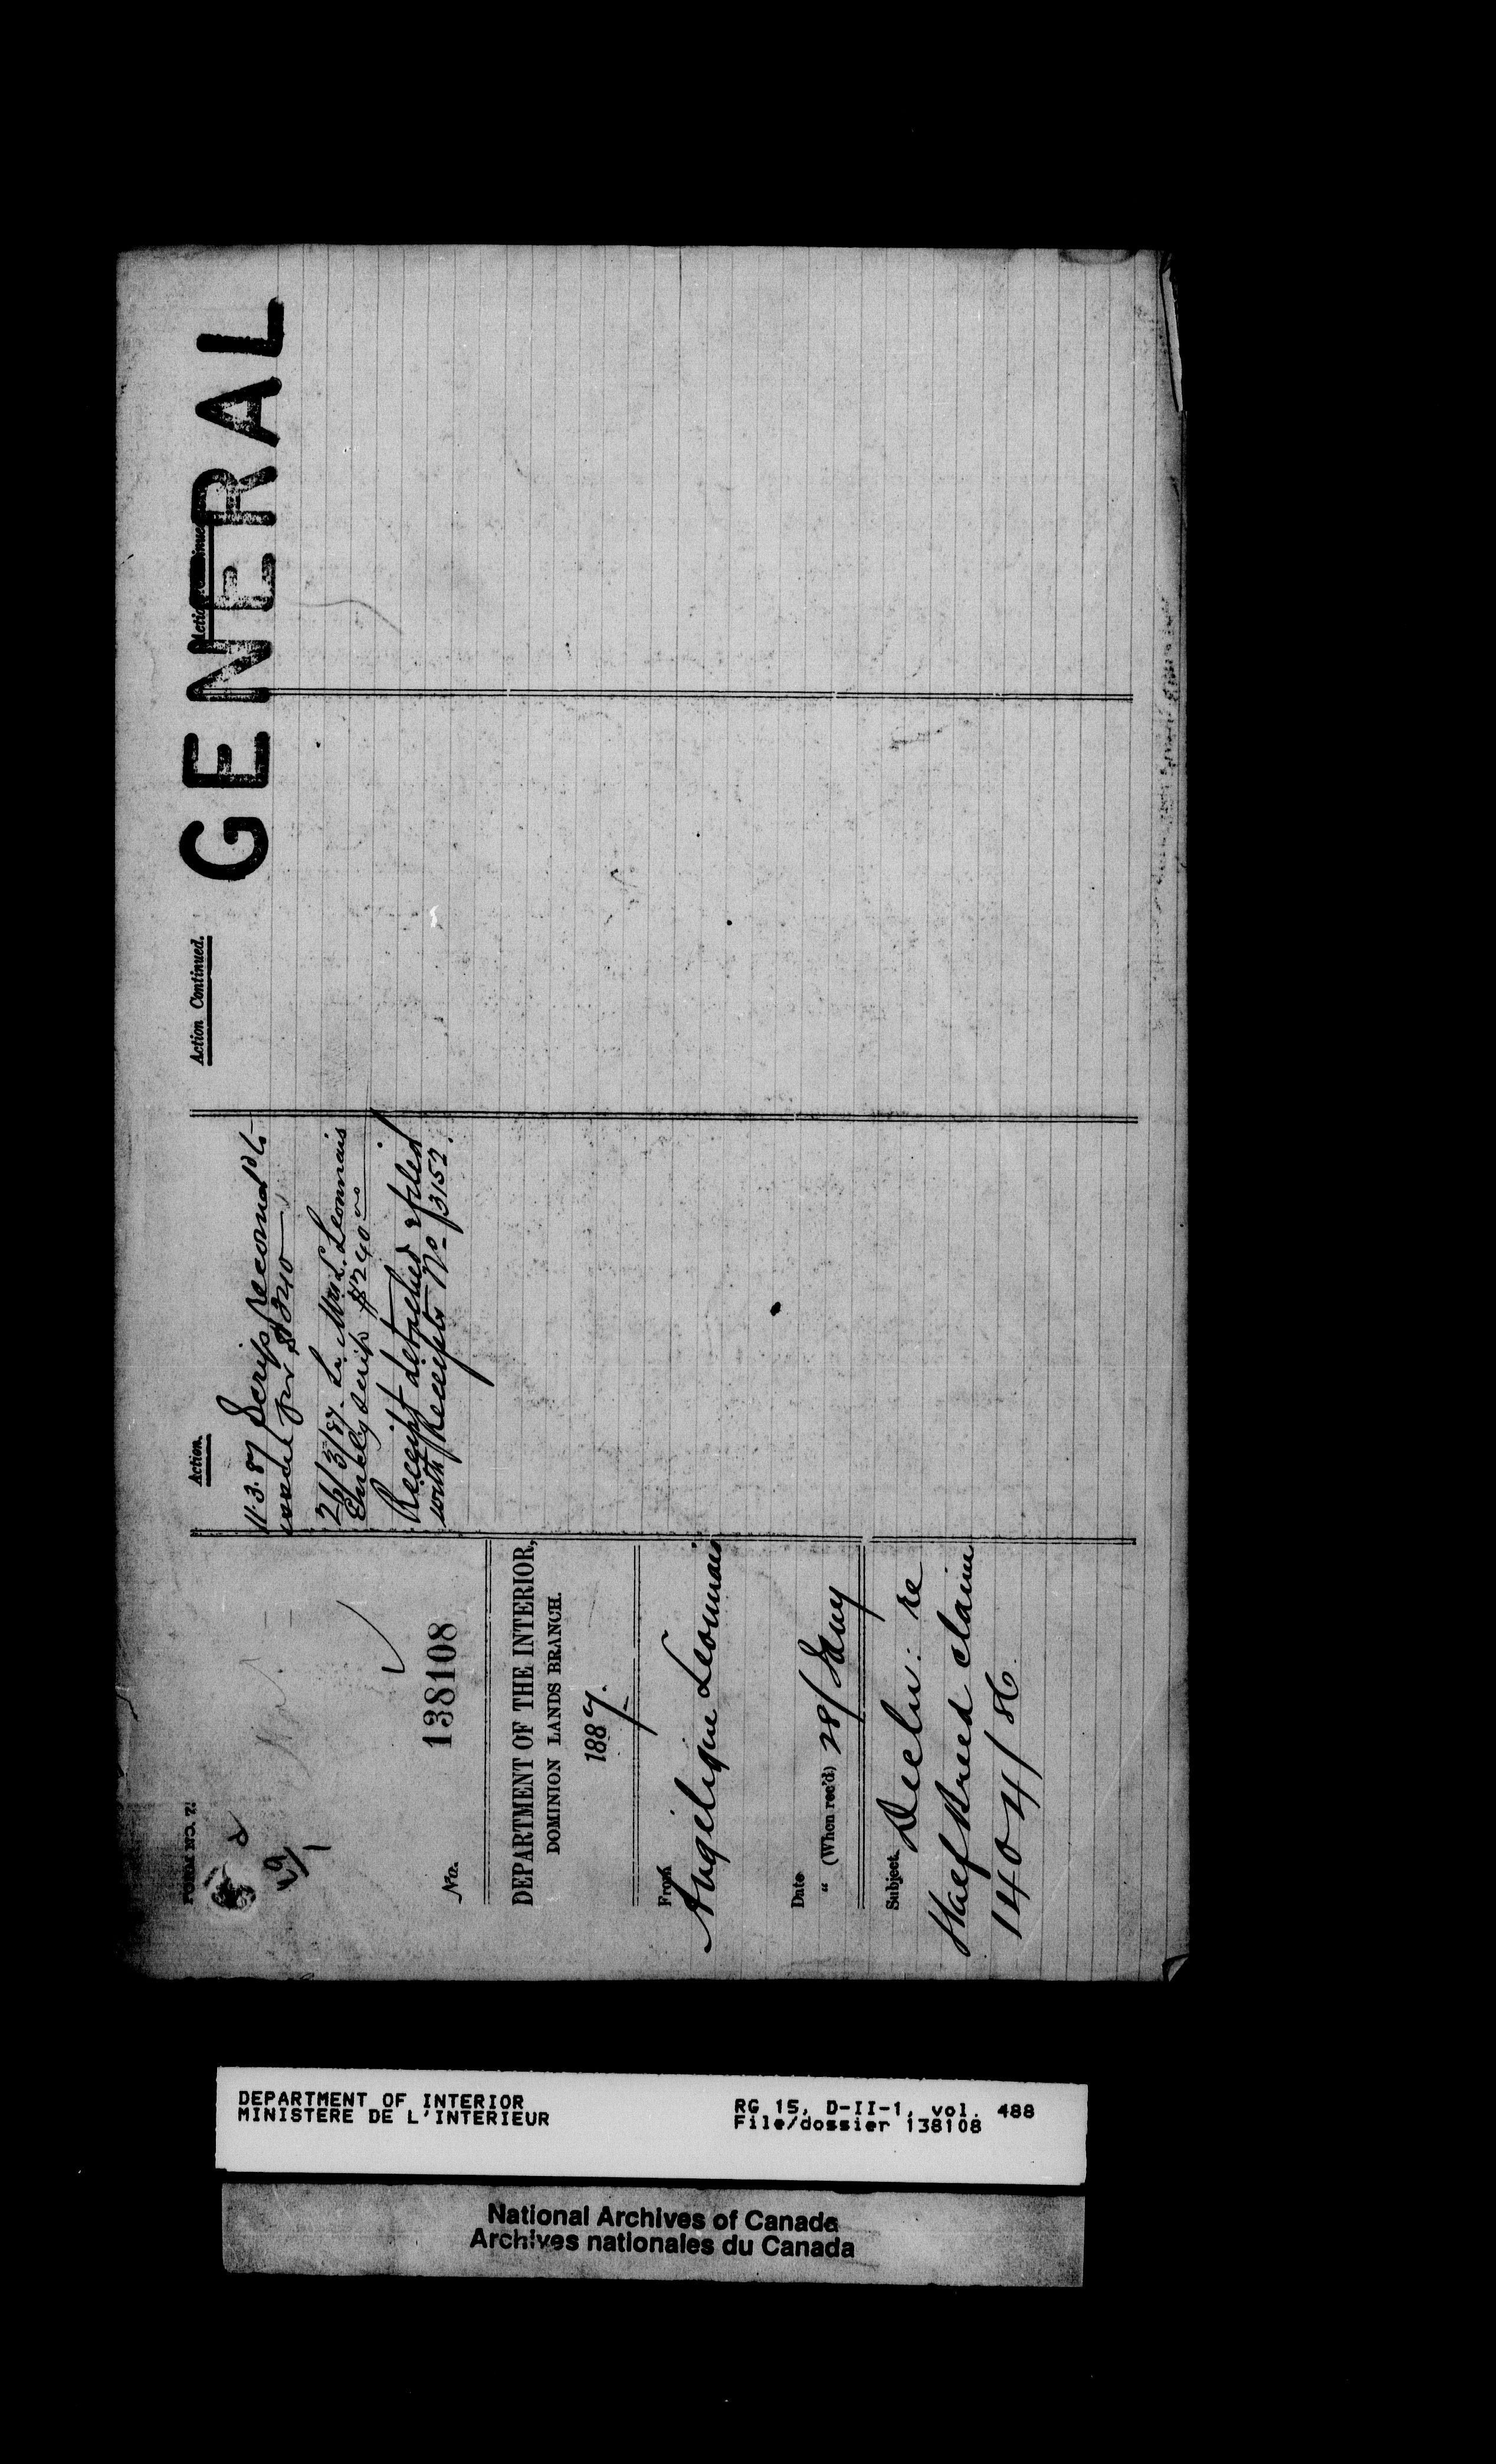 FORM NO. 7.
No. 138108
DEPARTMENT OF THE INTERIOR,
DOMINION LANDS BRANCH.
1887.
From
Angelique Leonnais
Date
" (When rec'd) 28/Jany
Subject. Decln: re
Half Breed claim
1404/86
Action.
11.3.87 Scrip recomd
made for $240
26/3/87. Mrs L. Leonnais
Encl'g scrip $240 00
Receipt detached & filed
with Receipts No 3152.
Action Continued.
GENERAL
Action Continued.
DEPARTMENT OF INTERIOR
MINISTERE DE L'INTERIEUR
RG 15, D-II-1, vol. 488
File/dossier 138108
National Archives of Canada
Archives nationales du Canada